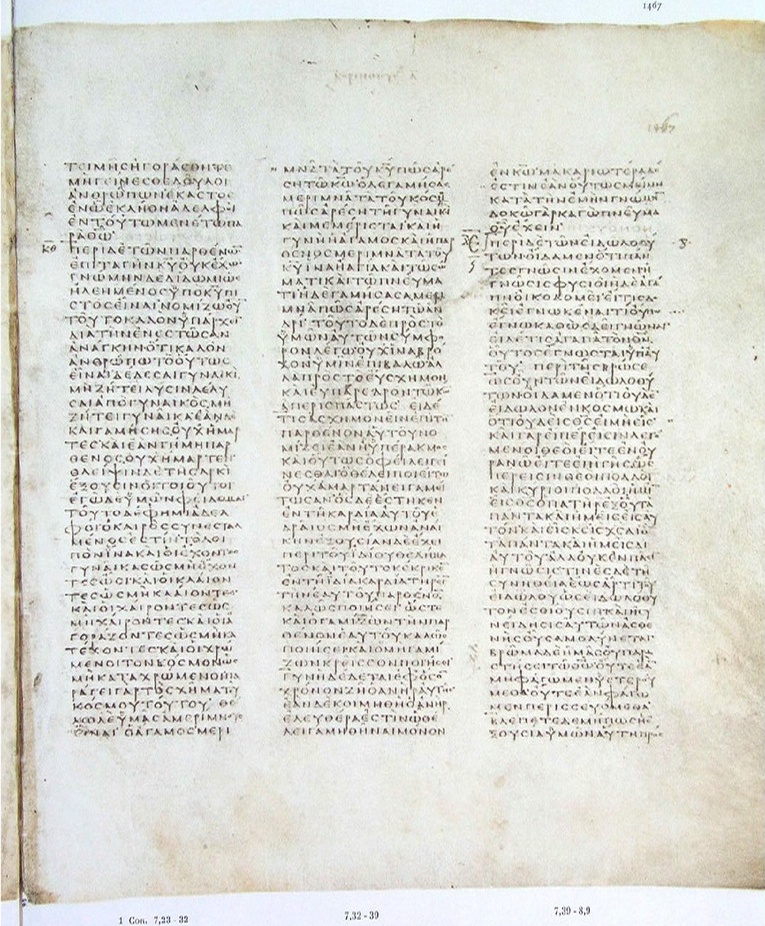 1467
1467
ΤΕΙΜΗϹΗΓΟΡΑϹΘΗΤΕ
ΜΗΓΕΙΝΕϹΘΕΔΟΥΛΟΙ
ΑΝΘΡΩΠΩΝΕΚΑϹΤΟϹ
ΕΝΩΕΚΛΗΘΗΑΔΕΛΦΟΙ
ΕΝΤΟΥΤΩΜΕΝΕΤΩΠΑ
ΡΑΘΩ
ΠΕΡΙΔΕΤΩΝΠΑΡΘΕΝΩ
ΕΠΙΤΑΓΗΝΚΥΟΥΚΕΧΩ
ΓΝΩΜΗΝΔΕΔΙΔΩΜΙΩϹ
ΗΛΕΗΜΕΝΟϹΥΠΟΚΥΠΙ
ϹΤΟϹΕΙΝΑΙΝΟΜΙΖΩΟΥ
ΤΟΥΤΟΚΑΛΟΝΥΠΑΡΧΕΙ
ΔΙΑΤΗΝΕΝΕϹΤΩϹΑΝ
ΑΝΑΓΚΗΝΟΤΙΚΑΛΟΝ
ΑΝΘΡΩΠΩΤΟΟΥΤΩϹ
ΕΙΝΑΙΔΕΔΕϹΑΙΓΥΝΑΙΚΙ
ΜΗΖΗΤΕΙΛΥϹΙΝΛΕΛΥ
ϹΑΙΑΠΟΓΥΝΑΙΚΟϹΜΗ
ΖΗΤΕΙΓΥΝΑΙΚΑΕΑΝΔΕ
ΚΑΙΓΑΜΗϹΗϹΟΥΧΗΜΑΡ
ΤΕϹΚΑΙΕΑΝΓΗΜΗΠΑΡ
ΘΕΝΟϹΟΥΧΗΜΑΡΤΕΝ
ΘΛΕΙΨΙΝΔΕΤΗϹΑΡΚΙ
ΕΞΟΥϹΙΝΟΙΤΟΙΟΥΤΟΙ
ΕΓΩΔΕΥΜΩΝΦΕΙΔΟΜΑΙ
ΤΟΥΤΟΔΕΦΗΜΙΑΔΕΛ
ΦΟΙΟΚΑΙΡΟϹϹΥΝΕϹΤΑΛ
ΜΕΝΟϹΕϹΤΙΝΤΟΛΟΙ
ΠΟΝΙΝΑΚΑΙΟΙΕΧΟΝΤΕϹ
ΓΥΝΑΙΚΑϹΩϹΜΗΕΧΟΝ
ΤΕϹΩϹΙΚΑΙΟΙΚΛΑΙΟΝ
ΤΕϹΩϹΜΗΚΛΑΙΟΝΤΕϹ
ΚΑΙΟΙΧΑΙΡΟΝΤΕϹΩϹ
ΜΗΧΑΙΡΟΝΤΕϹΚΑΙΟΙΑ
ΓΟΡΑΖΟΝΤΕϹΩϹΜΗΚΑ
ΤΕΧΟΝΤΕϹΚΑΙΟΙΧΡΩ
ΜΕΝΟΙΤΟΝΚΟϹΜΟΝΩϹ
ΜΗΚΑΤΑΧΡΩΜΕΝΟΙΠΑ
ΡΑΓΕΙΓΑΡΤΟϹΧΗΜΑΤΟΥ
ΚΟϹΜΟΥΤΟΥΤΟΥ ΘΕ
ΛΩΔΕΥΜΑϹΑΜΕΡΙΜΝΟΥϹ
ΕΙΝΑΙ ΟΑΓΑΜΟϹΜΕΡΙ
ΜΝΑΤΑΤΟΥΚΥΠΩϹΑΡΕ
ϹΗΤΩΚΩΟΔΕΓΑΜΗϹΑϹ
ΜΕΡΙΜΝΑΤΑΤΟΥΚΟϹΜΟΥ
ΠΩϹΑΡΕϹΗΤΗΓΥΝΑΙΚΙ
ΚΑΙΜΕΜΕΡΙϹΤΑΙΚΑΙΗ
ΓΥΝΗΗΑΓΑΜΟϹΚΑΙΗΠΑΡ
ΘΕΝΟϹΜΕΡΙΜΝΑΤΑΤΟΥ
ΚΥΙΝΑΗΑΓΙΑΚΑΙΤΩϹΩ
ΜΑΤΙΚΑΙΤΩΠΝΕΥΜΑ
ΤΙΗΔΕΓΑΜΗϹΑϹΑΜΕΡΙ
ΜΝΑΠΩϹΑΡΕϹΗΤΩΑΝ
ΔΡΙ ΤΟΥΤΟΔΕΠΡΟϹΤΟ
ΥΜΩΝΑΥΤΩΝϹΥΜΦΟ
ΡΟΝΛΕΓΩΟΥΧΙΝΑΒΡΟ
ΧΟΝΥΜΙΝΕΠΙΒΑΛΩΑΛ
ΛΑΠΡΟϹΤΟΕΥϹΧΗΜΟΝ
ΚΑΙΕΥΠΑΡΕΔΡΟΝΤΩΚΩ
ΑΠΕΡΙϹΠΑϹΤΩϹ ΕΙΔΕ
ΤΙϹΑϹΧΗΜΟΝΕΙΝΕΠΙΤΗ
ΠΑΡΘΕΝΟΝΑΥΤΟΥΝΟ
ΜΙΖΕΙΕΑΝΗΥΠΕΡΑΚΜΟϹ
ΚΑΙΟΥΤΩϹΟΦΕΙΛΕΙΓΕΙ
ΝΕϹΘΑΙΟΘΕΛΕΙΠΟΙΕΙΤΩ
ΟΥΧΑΜΑΡΤΑΝΕΙΓΑΜΕΙ
ΤΩϹΑΝΟϹΔΕΕϹΤΗΚΕΝ
ΕΝΤΗΚΑΡΔΙΑΑΥΤΟΥΕ
ΔΡΑΙΟϹΜΗΕΧΩΝΑΝΑΓ
ΚΗΝΕΞΟΥϹΙΑΝΔΕΕΧΕΙ
ΠΕΡΙΤΟΥΙΔΙΟΥΘΕΛΗΜΑ
ΤΟϹΚΑΙΤΟΥΤΟΚΕΚΡΙΚΕΝ
ΕΝΤΗΙΔΙΑΚΑΡΔΙΑΤΗΡΕΙΝ
ΤΗΝΕΑΥΤΟΥΠΑΡΘΕΝΟΝ
ΚΑΛΩϹΠΟΙΗϹΕΙ ΩϹΤΕ
ΚΑΙΟΓΑΜΙΖΩΝΤΗΝΠΑΡ
ΘΕΝΟΝΕΑΥΤΟΥΚΑΛΩϹ
ΠΟΙΗϹΕΙΚΑΙΟΜΗΓΑΜΙ
ΖΩΝΚΡΕΙϹϹΟΝΠΟΙΗϹΕΙ
ΓΥΝΗΔΕΔΕΤΑΙΕΦΟϹΟΝ
ΧΡΟΝΟΝΖΗΟΑΝΗΡΑΥΤΗϹ
ΕΑΝΔΕΚΟΙΜΗΘΗΟΑΝΗΡ
ΕΛΕΥΘΕΡΑΕϹΤΙΝΩΘΕ
ΛΕΙΓΑΜΗΘΗΝΑΙΜΟΝΟΝ
ΕΝΚΩΜΑΚΑΡΙΩΤΕΡΑΔΕ
ΕϹΤΙΝΕΑΝΟΥΤΩϹΜΕΙΝΗ
ΚΑΤΑΤΗΝΕΜΗΝΓΝΩΜΗ
ΔΟΚΩΓΑΡΚΑΓΩΠΝΕΥΜΑ
ΘΥΕΧΕΙΝ
ΠΕΡΙΔΕΤΩΝΕΙΔΩΛΟΘΥ
ΤΩΝΟΙΔΑΜΕΝΟΤΙΠΑΝ
ΤΕϹΓΝΩϹΙΝΕΧΟΜΕΝΗ
ΓΝΩϹΙϹΦΥϹΙΟΙΗΔΕΑΓΑ
ΠΗΟΙΚΟΔΟΜΕΙΕΙΤΙϹΔΟ
ΚΕΙΕΓΝΩΚΕΝΑΙΤΙΟΥΠΩ
ΕΓΝΩΚΑΘΩϹΔΕΙΓΝΩΝΑΙ
ΕΙΔΕΤΙϹΑΓΑΠΑΤΟΝΘΝ
ΟΥΤΟϹΕΓΝΩϹΤΑΙΥΠΑΥ
ΤΟΥ ΠΕΡΙΤΗϹΒΡΩϹΕ
ΩϹΟΥΝΤΩΝΕΙΔΩΛΟΘΥ
ΤΩΝΟΙΔΑΜΕΝΟΤΙΟΥΔΕ
ΕΙΔΩΛΟΝΕΝΚΟϹΜΩΚΑΙ
ΟΤΙΟΥΔΕΙϹΘϹΕΙΜΗΕΙϹ
ΚΑΙΓΑΡΕΙΠΕΡΕΙϹΙΝΛΕΓΟ
ΜΕΝΟΙΘΕΟΙΕΙΤΕΕΝΟΥ
ΡΑΝΩΕΙΤΕΕΠΙΓΗϹΩϹ
ΠΕΡΕΙϹΙΝΘΕΟΙΠΟΛΛΟΙ
ΚΑΙΚΥΡΙΟΙΠΟΛΛΟΙΗΜΙΝ
ΕΙϹΘϹΟΠΑΤΗΡΕΞΟΥΤΑ
ΠΑΝΤΑΚΑΙΗΜΕΙϹΕΙϹΑΥ
ΤΟΝΚΑΙΕΙϹΚϹΙϹΧϹΔΙΟΝ
ΤΑΠΑΝΤΑΚΑΙΗΜΕΙϹΔΙ
ΑΥΤΟΥΑΛΛΟΥΚΕΝΠΑϹΙ
ΗΓΝΩϹΙϹΤΙΝΕϹΔΕΤΗ
ϹΥΝΗΘΕΙΑΕΩϹΑΡΤΙΤΟΥ
ΕΙΔΩΛΟΥΩϹΕΙΔΩΛΟΘΥ
ΤΟΝΕϹΘΙΟΥϹΙΝΚΑΙΗϹΥ
ΝΕΙΔΗϹΙϹΑΥΤΩΝΑϹΘΕ
ΝΗϹΟΥϹΑΜΟΛΥΝΕΤΑΙ
ΒΡΩΜΑΔΕΗΜΑϹΟΥΠΑΡΑ
ϹΤΗϹΕΙΤΩΘΩΟΥΤΕΕΑ
ΜΗΦΑΓΩΜΕΝΥϹΤΕΡΟΥ
ΜΕΘΑΟΥΤΕΕΑΝΦΑΓΩ
ΜΕΝΠΕΡΙϹϹΕΥΟΜΕΘΑ
ΒΛΕΠΕΤΕΔΕΜΗΠΩϹΗΕ
ΞΟΥϹΙΑΥΜΩΝΑΥΤΗΠΡΟϹ
1 Cor. 7,23 - 32
7,32 - 39
7,39 - 8,9